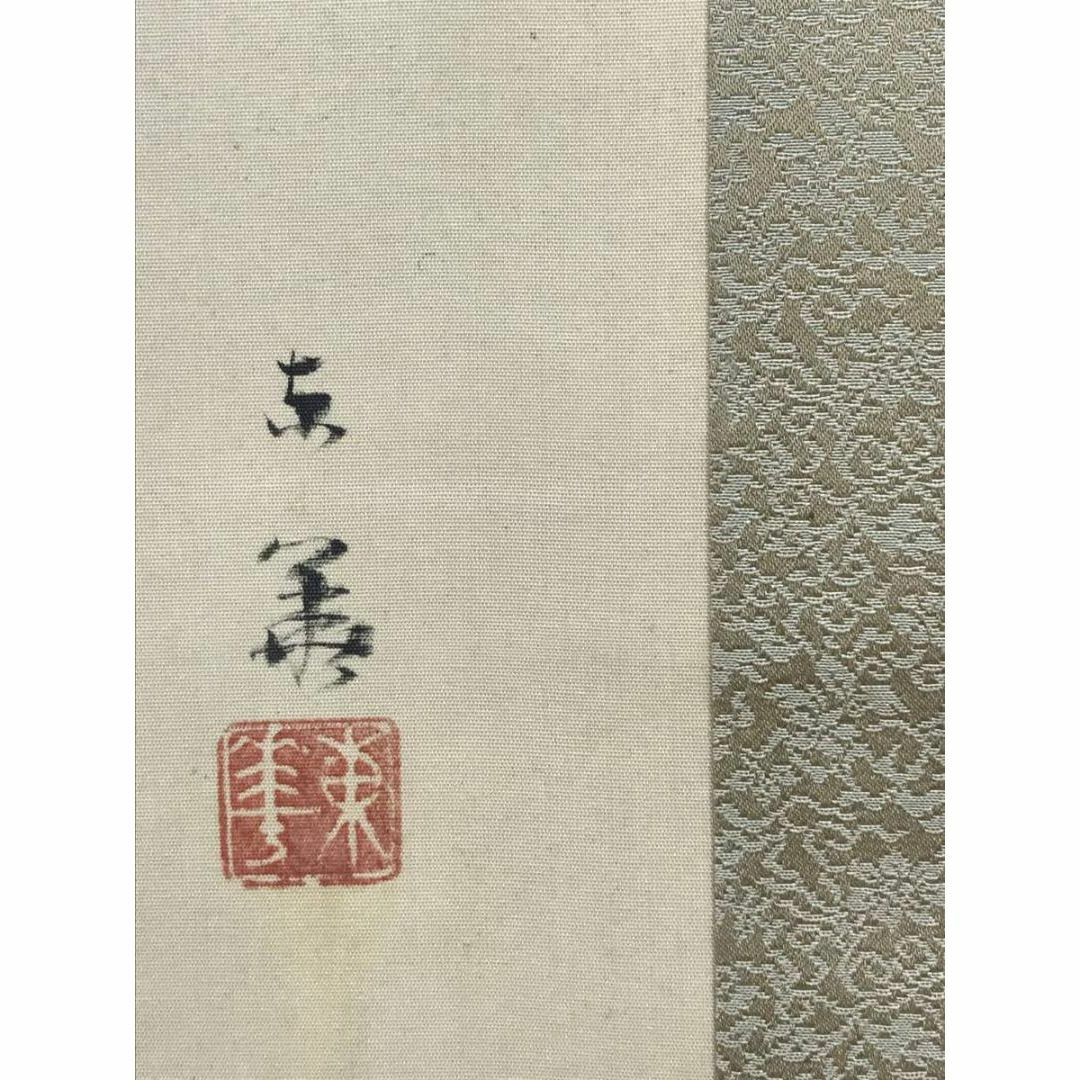 東
華
東華